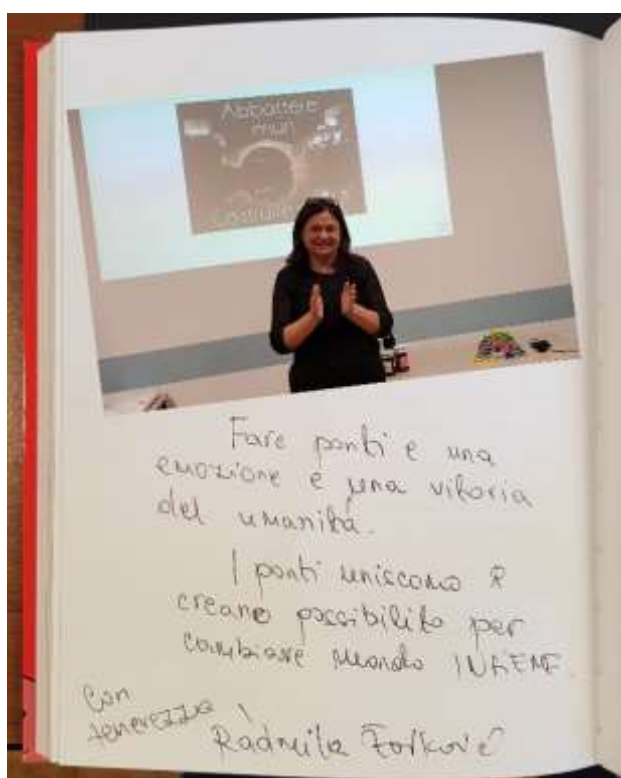 Abbattere
muri
Costruire
Fare ponti e una
emozione e una vitoria
del umanità.
I ponti uniscono e
creano possibilita per
cambiare mondo INSIEME.
Con
tenerezza,
Radmila